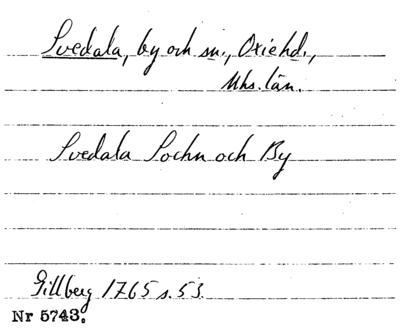 Svedala, by och sn., Oxiehd.,
Mhs. län.
Svedala Sochn och By
Gillberg 1765 s. 53.
Nr 5743.